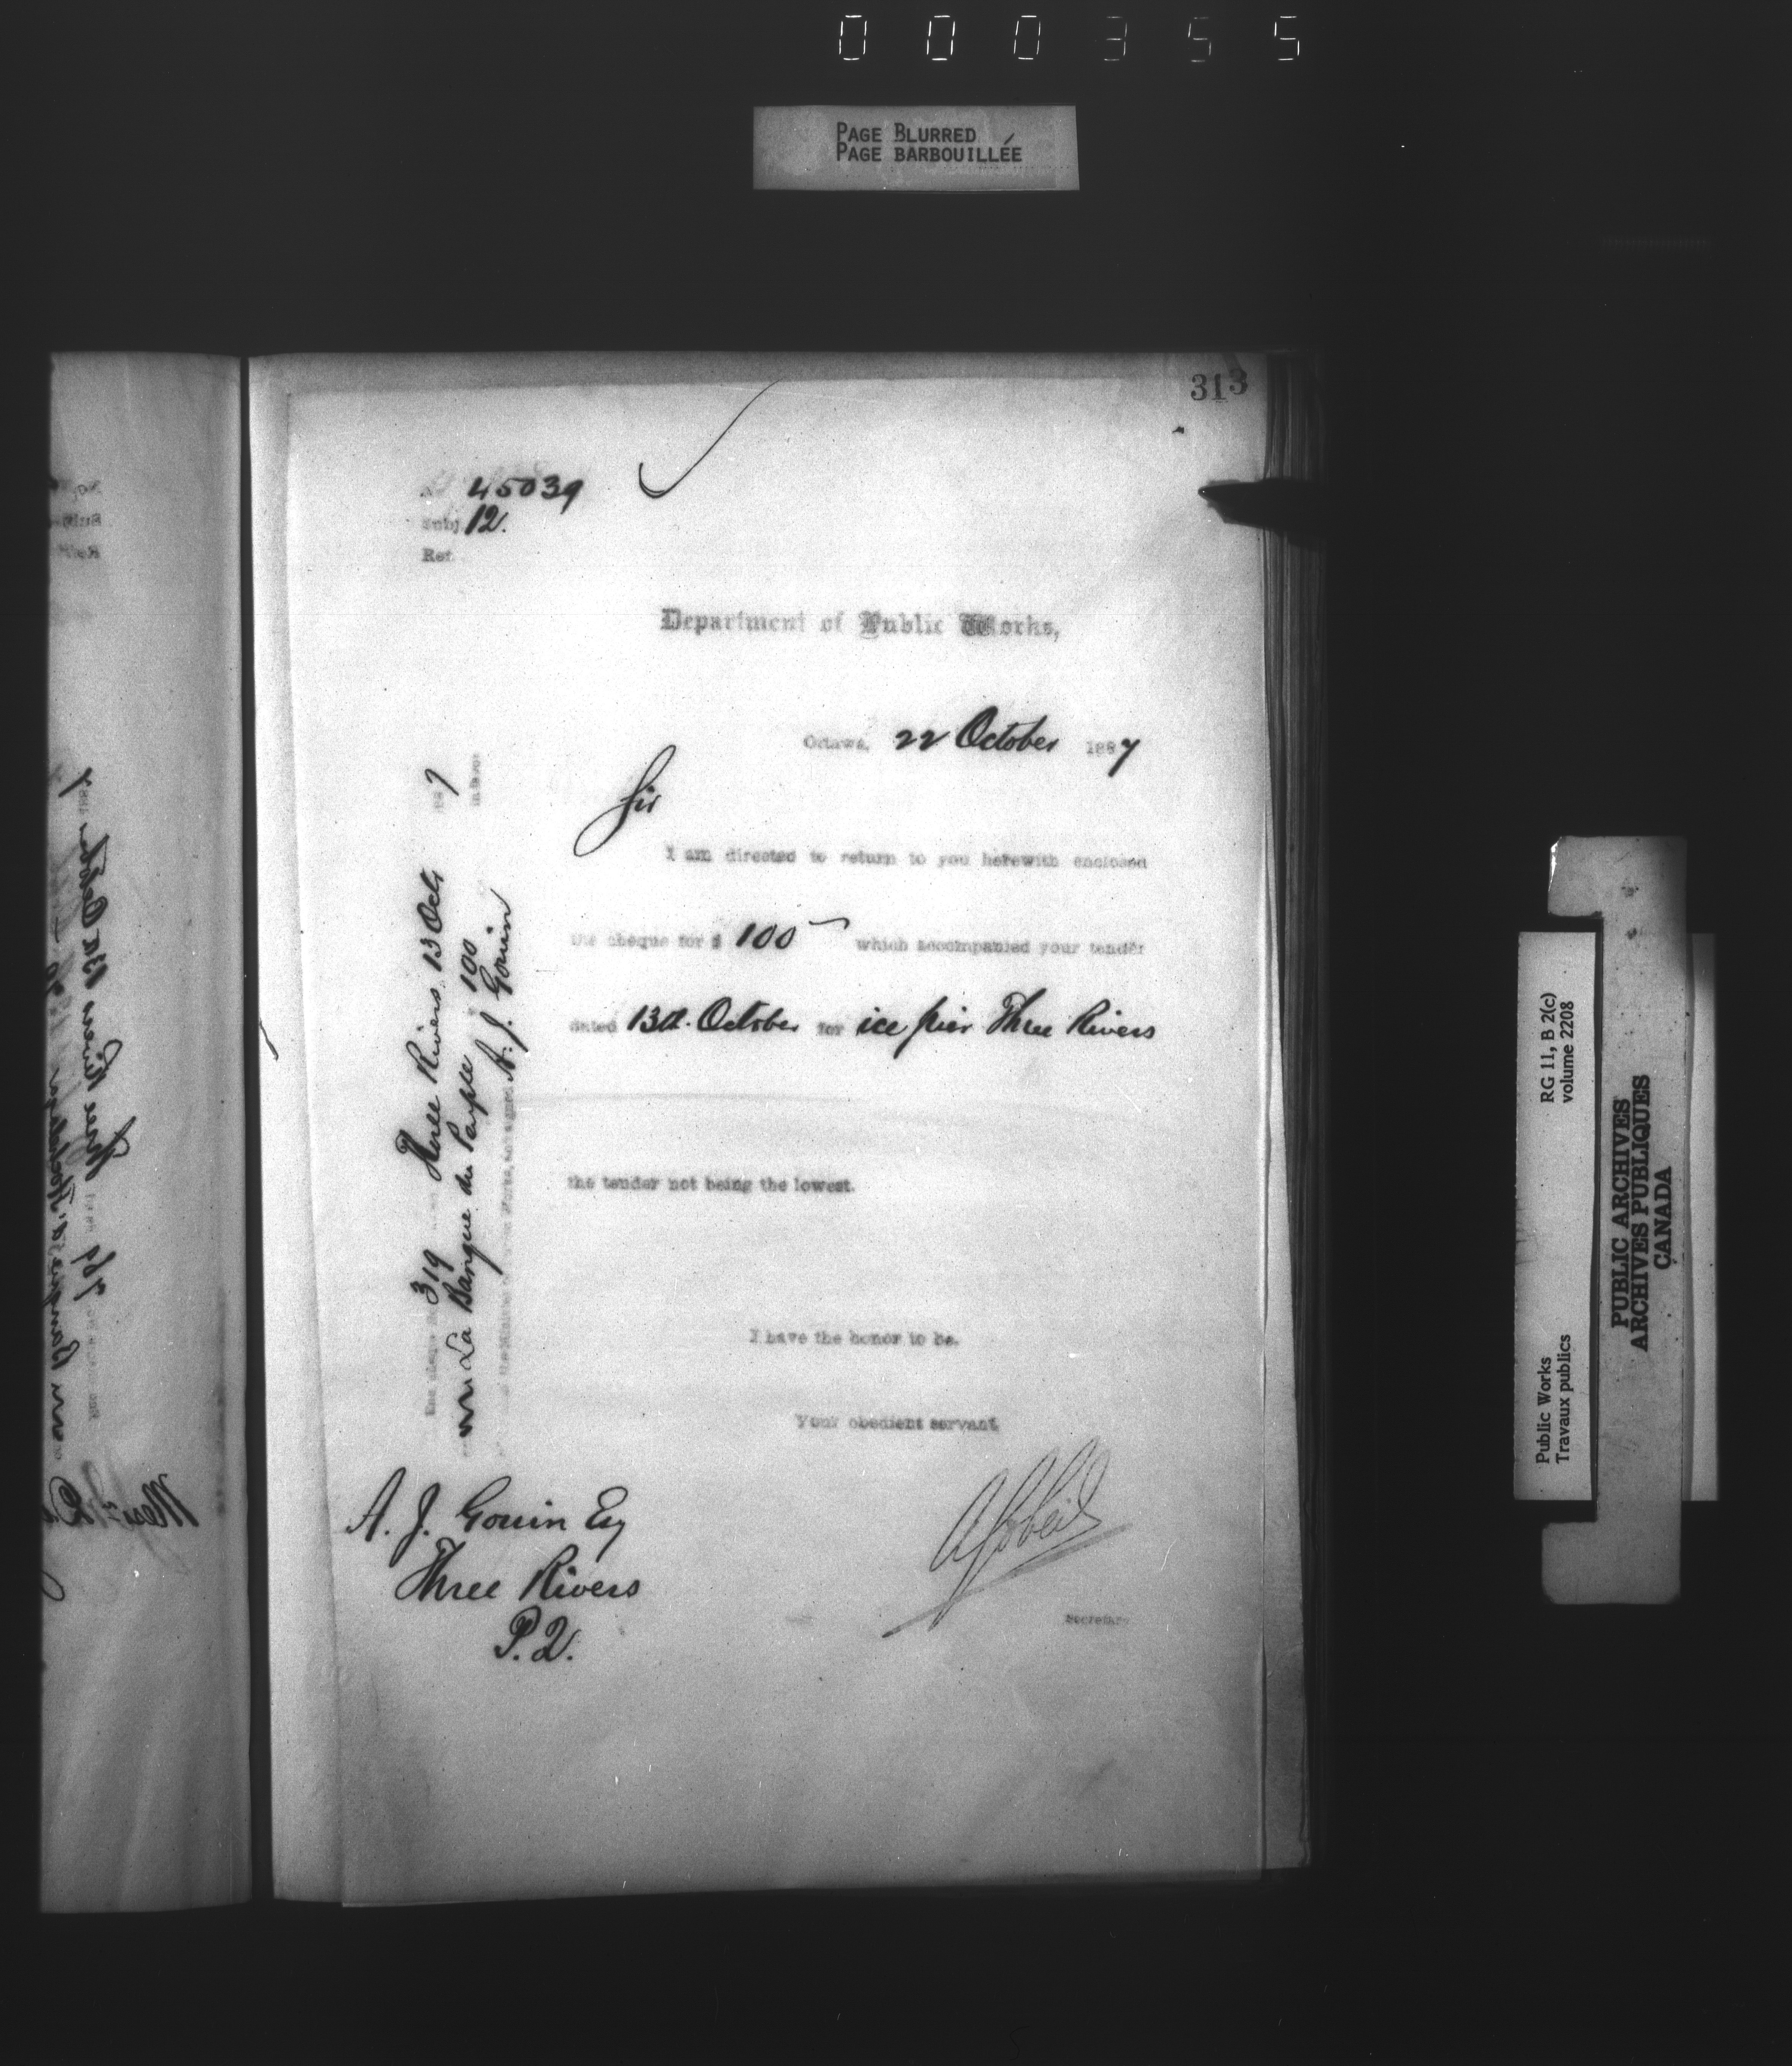 000355
PAGE BLURRED
PAGE BARBOUILLÉE
313
45039
Subj 12.
Ref.
Department of Public Works,
Ottawa, 22 October 1887
Sir
I am directed to return to you herewith enclosed
the cheque for $ 100 which accompanied your tender
dated 13th. October for ice pier Three Rivers
the tender not being the lowest.
I have the honor to be,
Your obedient servant,
Secretary
A. J. Gouin Esq
Three Rivers
P.Q.
319 Three Rivers 13 Octr 1887
on La Banque du Peuple $ 100 in favor
of the Minister of Public Works, and signed A. J. Gouin
Public Works RG 11, B 2(c)
Travaux publics volume 2208
PUBLIC ARCHIVES
ARCHIVES PUBLIQUES
CANADA